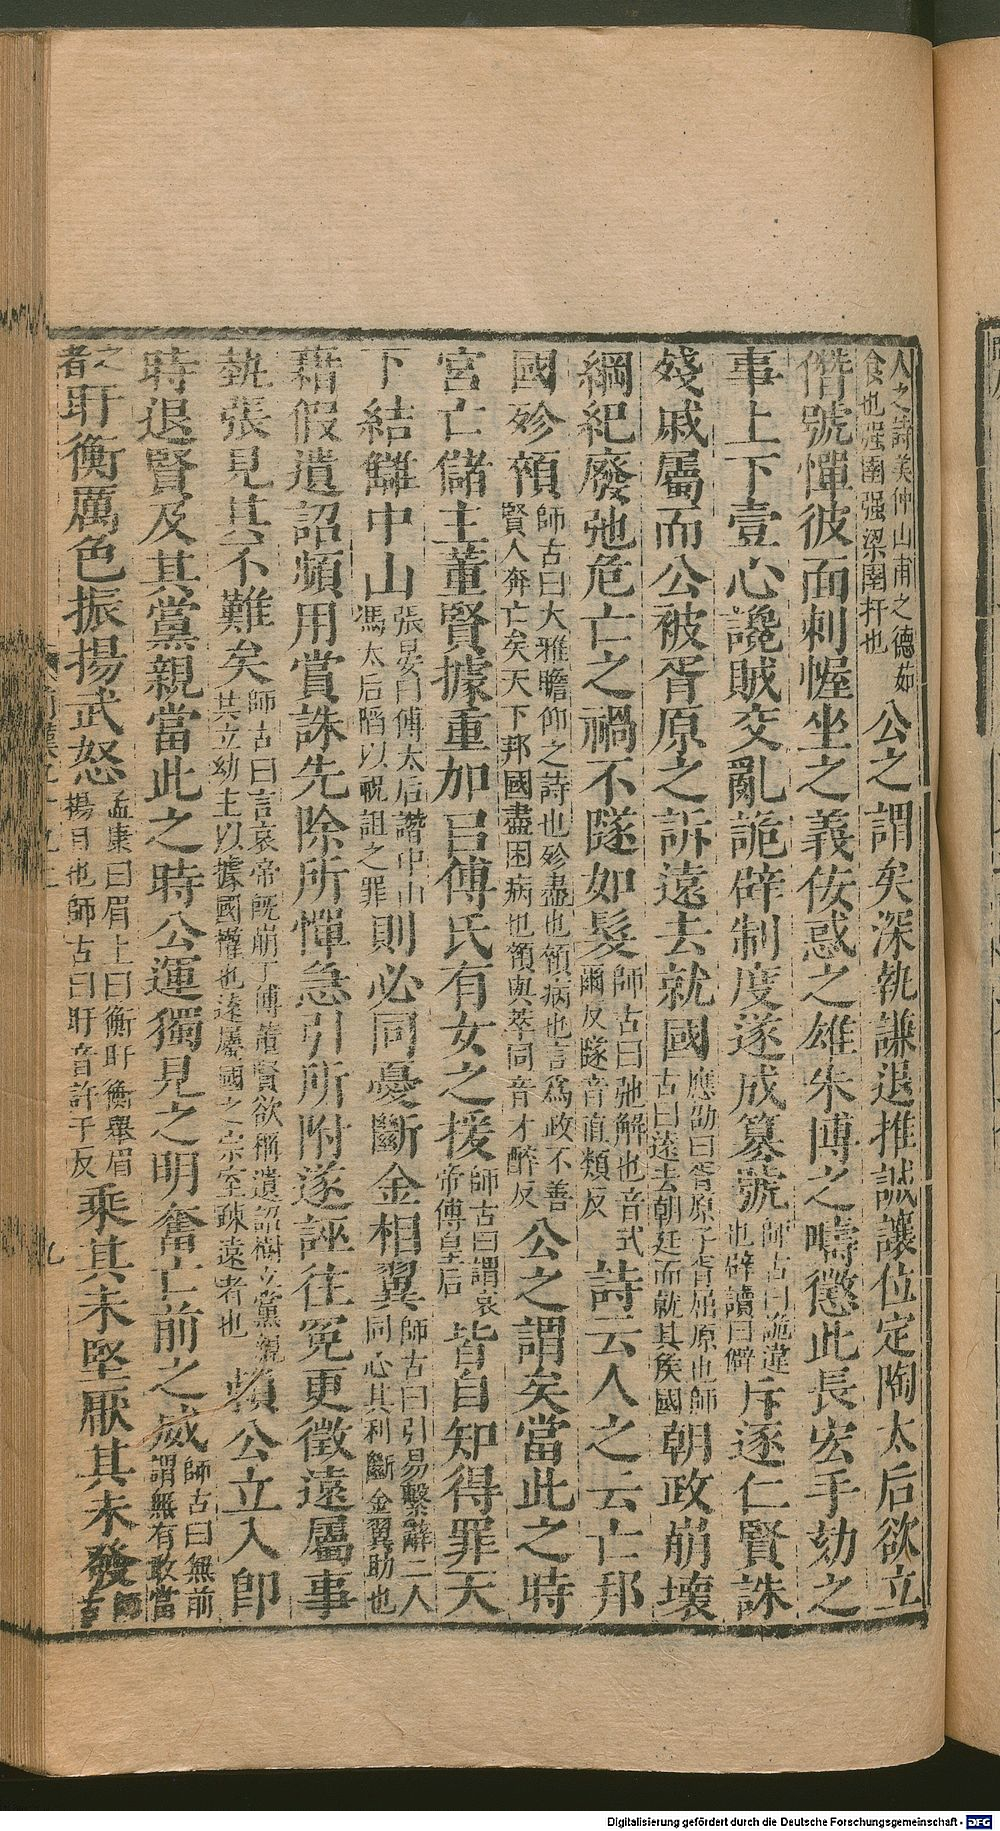 人之詩美仲山甫之德茹
食也强圉强梁圉扞也
公之謂矣深執謙退推誠讓位定陶太后欲立
僭號憚彼面刺幄坐之義佞惑之雄朱博之疇懲此長宏手劾之
事上下壹心讒賊交亂詭辟制度遂成篡號
師古曰詭違
也辟讀曰僻
斥逐仁賢誅
殘戚屬而公被胥原之訴遠去就國
應劭曰胥原子胥屈原也師
古曰遠去朝廷而就其侯國
朝政崩壞
綱紀廢弛危亡之禍不隧如髮
師古曰弛解也音式
爾反隧音直類反
詩云人之云亡邦
國殄顇
師古曰大雅瞻卬之詩也殄盡也顇病也言爲政不善
賢人奔亡矣天下邦國盡困病也顇與萃同音才醉反
公之謂矣當此之時
宮亡儲主董賢據重加吕傅氏有女之援
師古曰謂哀
帝傅皇后
皆自知得罪天
下結讎中山
張晏曰傅太后譖中山
馮太后陷以祝詛之罪
則必同憂斷金相翼
師古曰引易繫辭二人
同心其利斷金翼助也
藉假遺詔頻用賞誅先除所憚急引所附遂誣往冤更徵遠屬事
埶張見其不難矣
師古曰言哀帝既崩丁傅董賢欲稱遺詔樹立黨親
共立幼主以據國權也遠屬國之宗室疎遠者也
賴公立入卽
時退賢及其黨親當此之時公運獨見之明奮亡前之威
師古曰無前
謂無有敢當
之
者
盱衡厲色振揚武怒
孟康曰眉上曰衡盱衡舉眉
揚目也師古曰盱音許于反
乘其未堅厭其未發
師
古
前漢九十九上
九
Digitalisierung gefördert durch die Deutsche Forschungsgemeinschaft - DFG